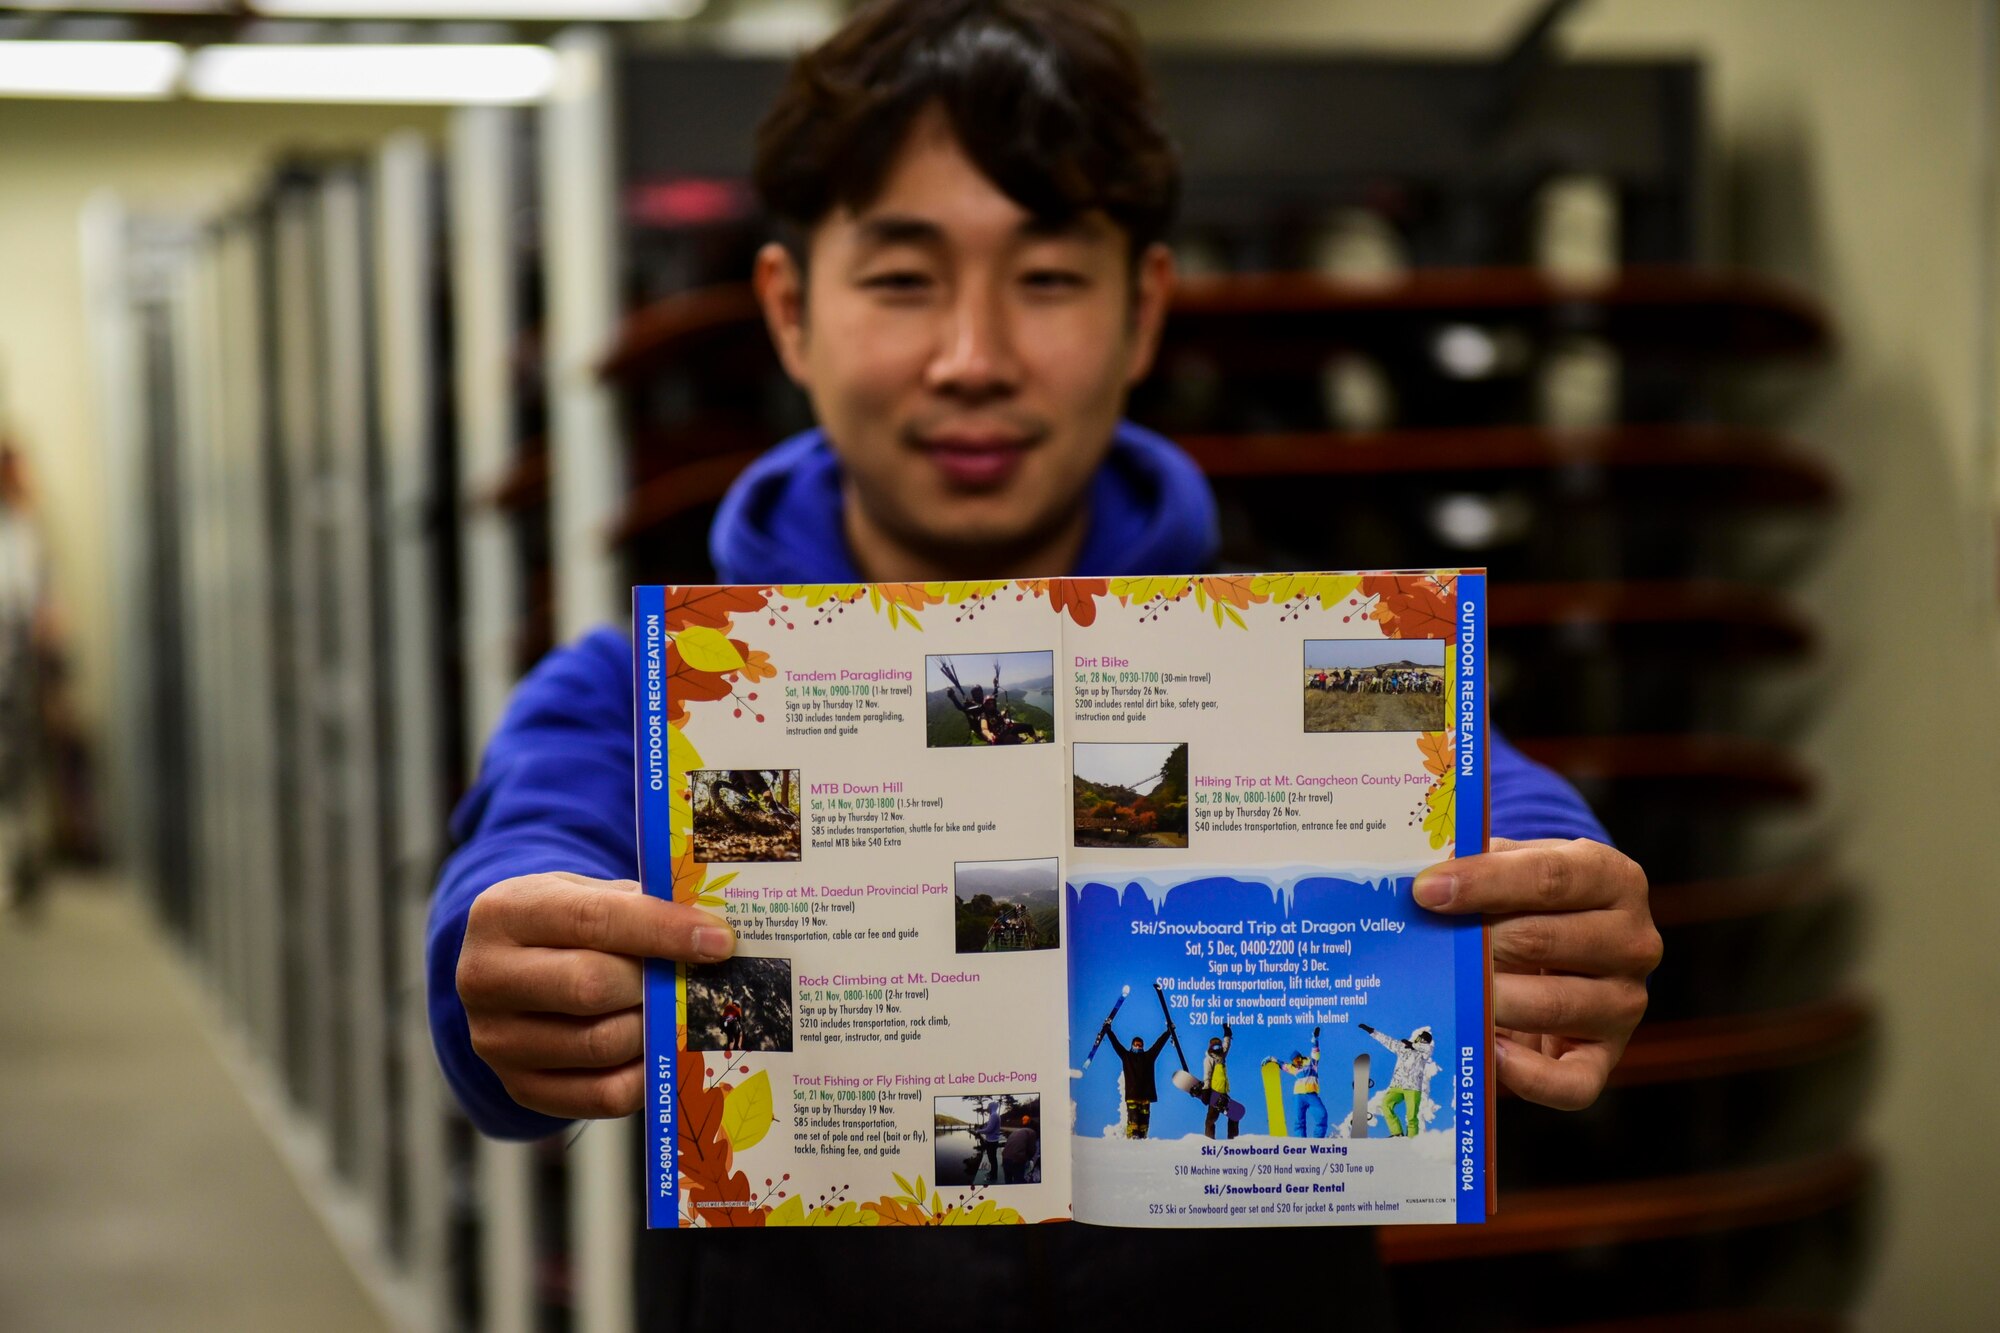 OUTDOOR RECREATION
782-6904 • BLDG 517
Tandem Paragliding
Sat, 14 Nov, 0900-1700 (1-hr travel)
Sign up by Thursday 12 Nov.
$130 includes tandem paragliding,
instruction and guide
MTB Down Hill
Sat, 14 Nov, 0730-1800 (1.5-hr travel)
Sign up by Thursday 12 Nov.
$85 includes transportation, shuttle for bike and guide
Rental MTB bike $40 Extra
Hiking Trip at Mt. Daedun Provincial Park
Sat, 21 Nov, 0800-1600 (2-hr travel)
Sign up by Thursday 19 Nov.
includes transportation, cable car fee and guide
Rock Climbing at Mt. Daedun
Sat, 21 Nov, 0800-1600 (2-hr travel)
Sign up by Thursday 19 Nov.
$210 includes transportation, rock climb,
rental gear, instructor, and guide
Trout Fishing or Fly Fishing at Lake Duck-Pong
Sat, 21 Nov, 0700-1800 (3-hr travel)
Sign up by Thursday 19 Nov.
$85 includes transportation,
one set of pole and reel (bait or fly),
tackle, fishing fee, and guide
Dirt Bike
Sat, 28 Nov, 0930-1700 (30-min travel)
Sign up by Thursday 26 Nov.
$200 includes rental dirt bike, safety gear,
instruction and guide
Hiking Trip at Mt. Gangcheon County Park
Sat, 28 Nov, 0800-1600 (2-hr travel)
Sign up by Thursday 26 Nov.
$40 includes transportation, entrance fee and guide
Ski/Snowboard Trip at Dragon Valley
Sat, 5 Dec, 0400-2200 (4 hr travel)
Sign up by Thursday 3 Dec.
$90 includes transportation, lift ticket, and guide
$20 for ski or snowboard equipment rental
$20 for jacket & pants with helmet
Ski/Snowboard Gear Waxing
$10 Machine waxing / $20 Hand waxing / $30 Tune up
Ski/Snowboard Gear Rental
$25 Ski or Snowboard gear set and $20 for jacket & pants with helmet
KUNSANFSS.COM 19
OUTDOOR RECREATION
BLDG 517 • 782-6904